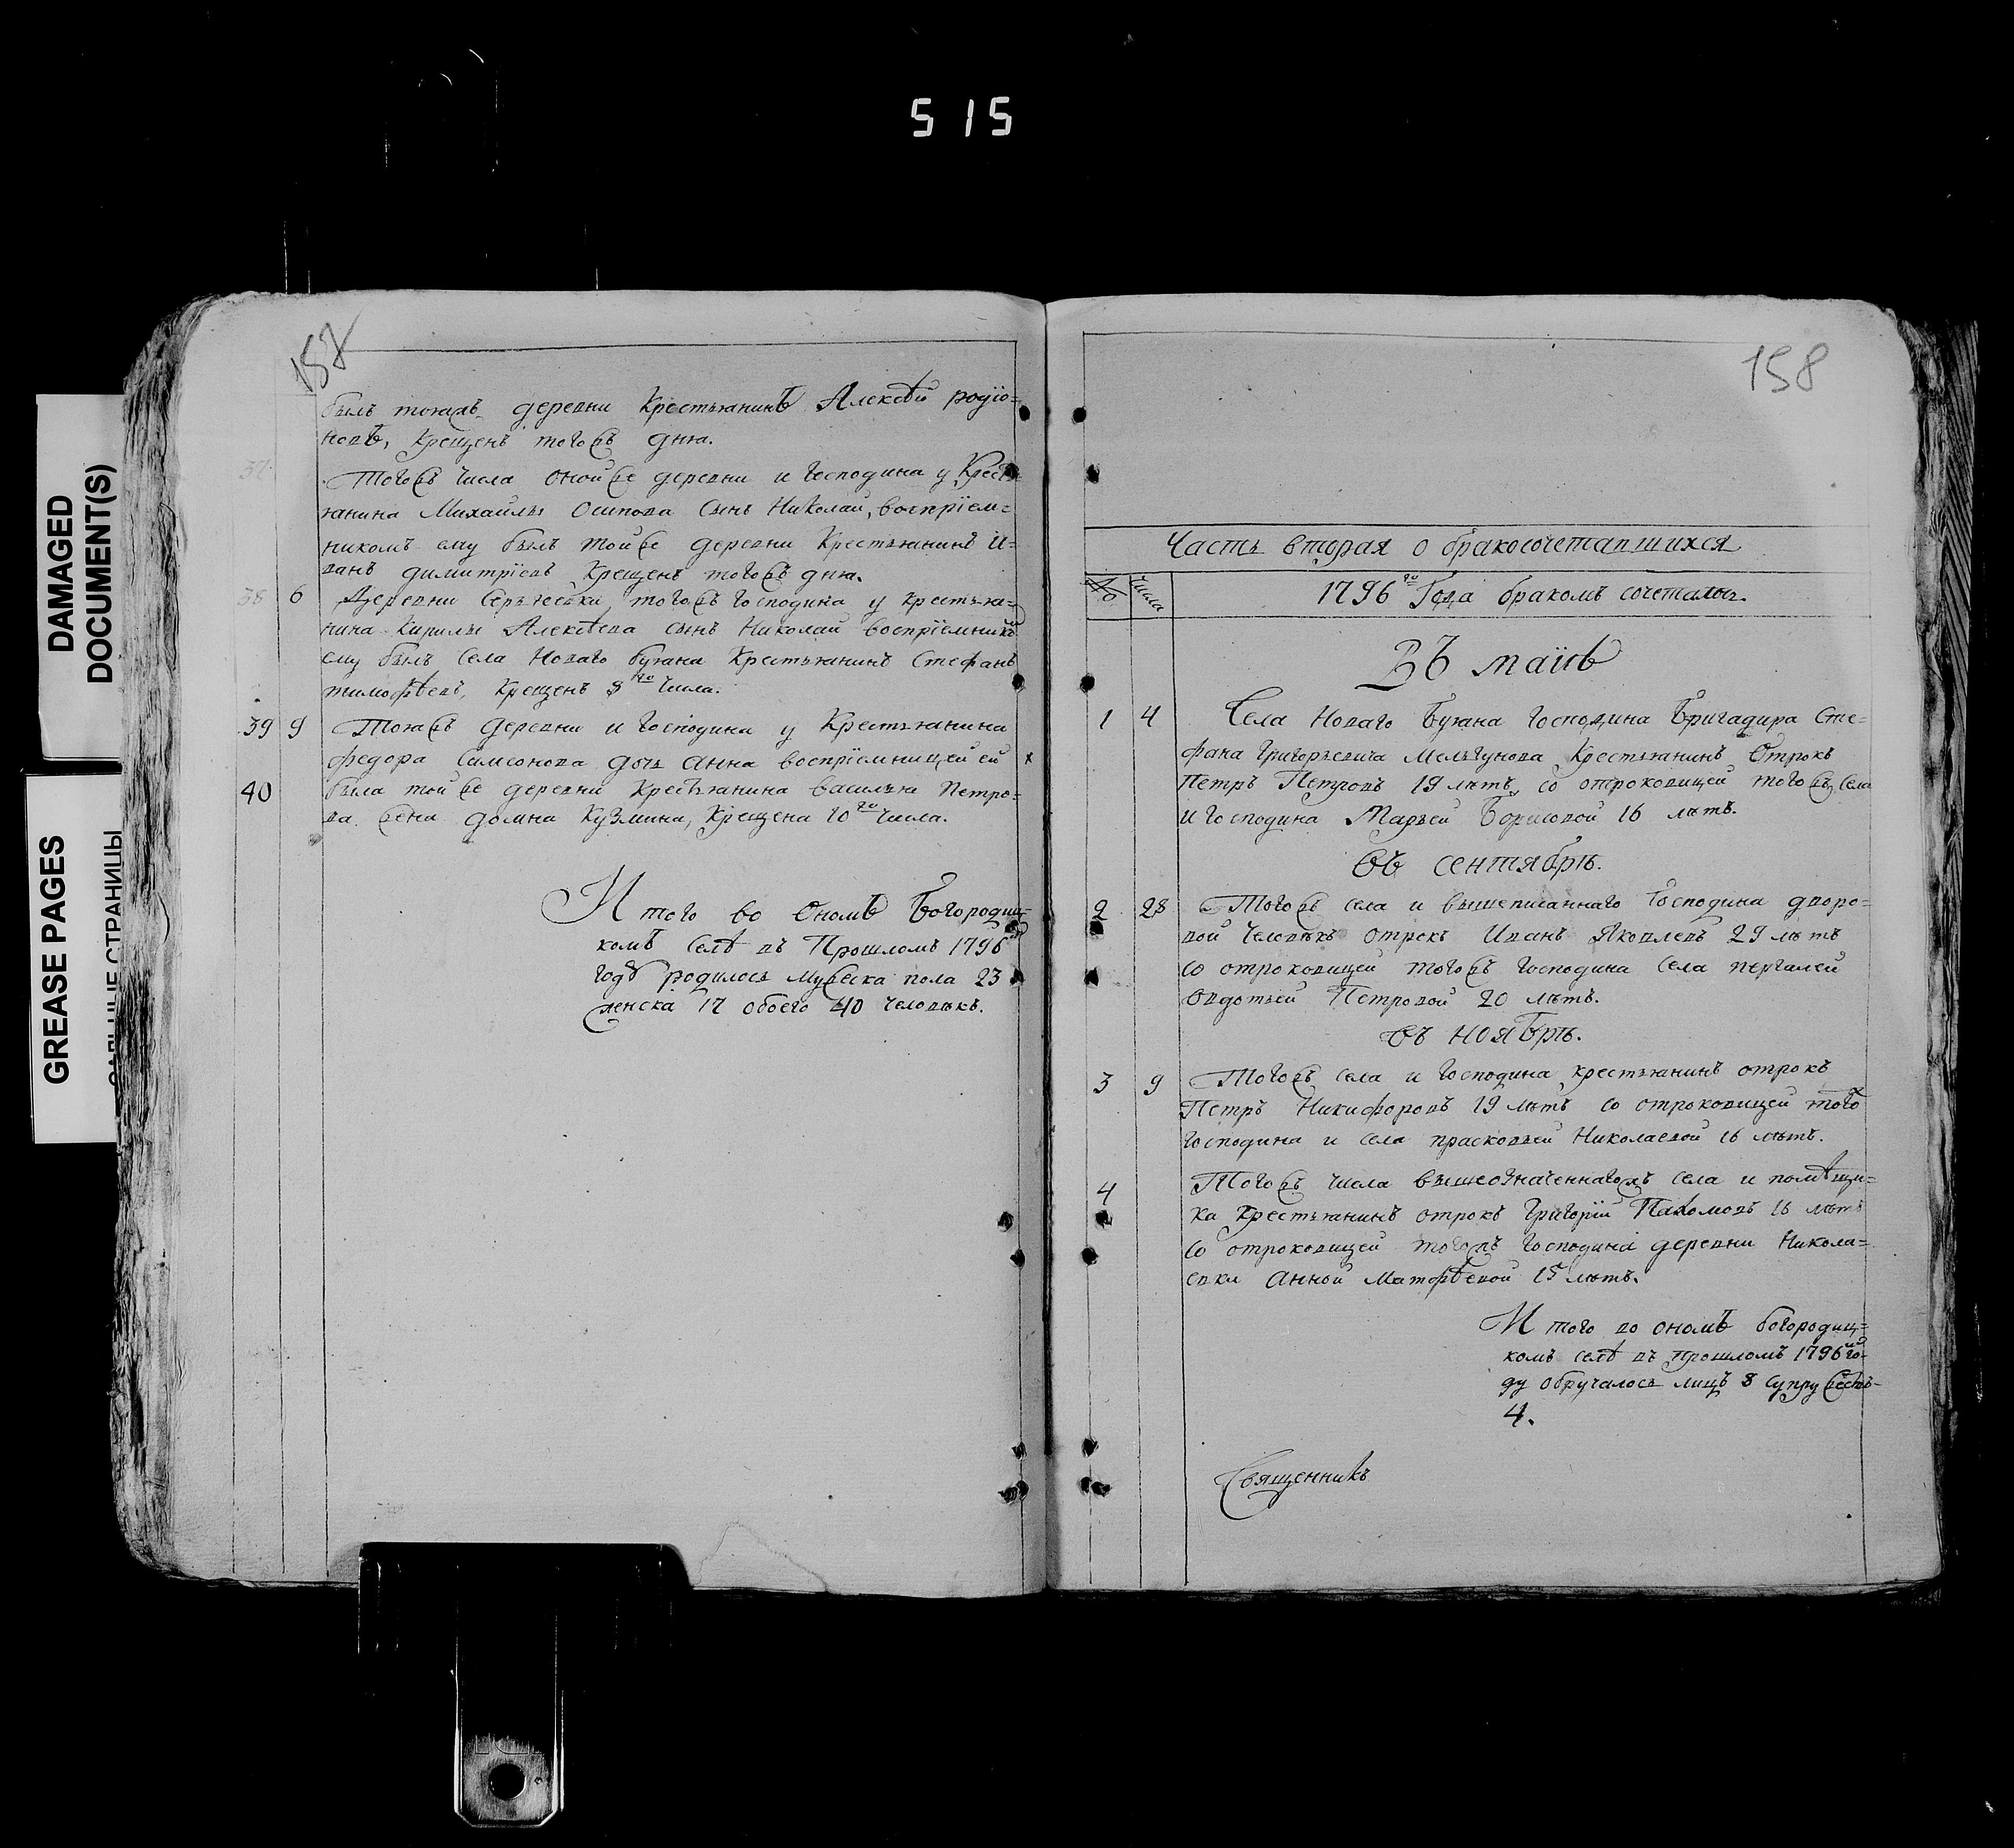 515
DAMAGED
DOCUMENT(S)
GREASE PAGES
САЛЬНЫЕ СТРАНИЦЫ
157
былъ тояжъ деревни Крестьянинъ Алексѣй родіо=
новъ, Крещенъ тогожъ дня.
37. Тогожъ числа онойже деревни и Господина у Кресть=
янина Михайлы Осипова сынъ Николай, воспріем=
никомъ ему былъ тойже деревни Крестьянинъ И=
ванъ димитріевъ Крещенъ тогожъ дня.
38 6 Деревни Сергѣевки тогожъ Господина у крестья=
нина Кирилы Алексѣева сынъ Николай воспріемникомъ
ему былъ Села Новаго Бугана Крестьянинъ Стефанъ
тимофѣевъ, Крещенъ 8го числа.
39 9 Тояжъ деревни и Господина у Крестьянина
федора Самсонова дочь Анна воспріемницей ей
40 была тойже деревни Крестьянина василья Петро=
ва жена домна Кузмина, Крещена 10го числа.
Итого во Ономъ Богородиц=
комъ Селѣ въ Прошломъ 1796мъ
годѣ родилось мужеска пола 23
женска 17 обоего 40 человѣкъ.
158
Часть вторая о бракосочетавшихся
№ Числа 1796го Года бракомъ сочетались.
Въ маїѣ
1 4 Села Новаго Бугана Господина Бригадира Сте=
фана Григорьевича Мельгунова Крестьянинъ Отрокъ
Петръ Петровъ 19 лѣтъ, со отроковицей тогожъ Села
и Господина Марьей Борисовой 16 лѣтъ.
въ сентябрѣ.
2 28 Тогожъ села и вышеписаннаго Господина дворо=
вой человѣкъ отрокъ Иванъ Яковлевъ 29 лѣтъ
со отроковицей тогожъ Господина Села
Овдотьей Петровой 20 лѣтъ.
въ ноябрѣ.
3 9 Тогожъ села и Господина крестьянинъ отрокъ
Петръ Никифоровъ 19 лѣтъ со отроковицей тогож
Господина и села прасковьей Николаевой 16 лѣтъ.
4 Тогожъ числа вышеозначеннагожъ села и помѣщи=
ка Крестьянинъ отрокъ Григорій Пахомовъ 16 лѣтъ
со отроковицей тогожъ Господина деревни Никола=
евки Анной Матфѣевой 15 лѣтъ.
Итого во ономъ богородиц=
комъ селѣ въ прошломъ 1796мъ го=
ду обручалось лицъ 8 супружествъ
4.
Священникъ